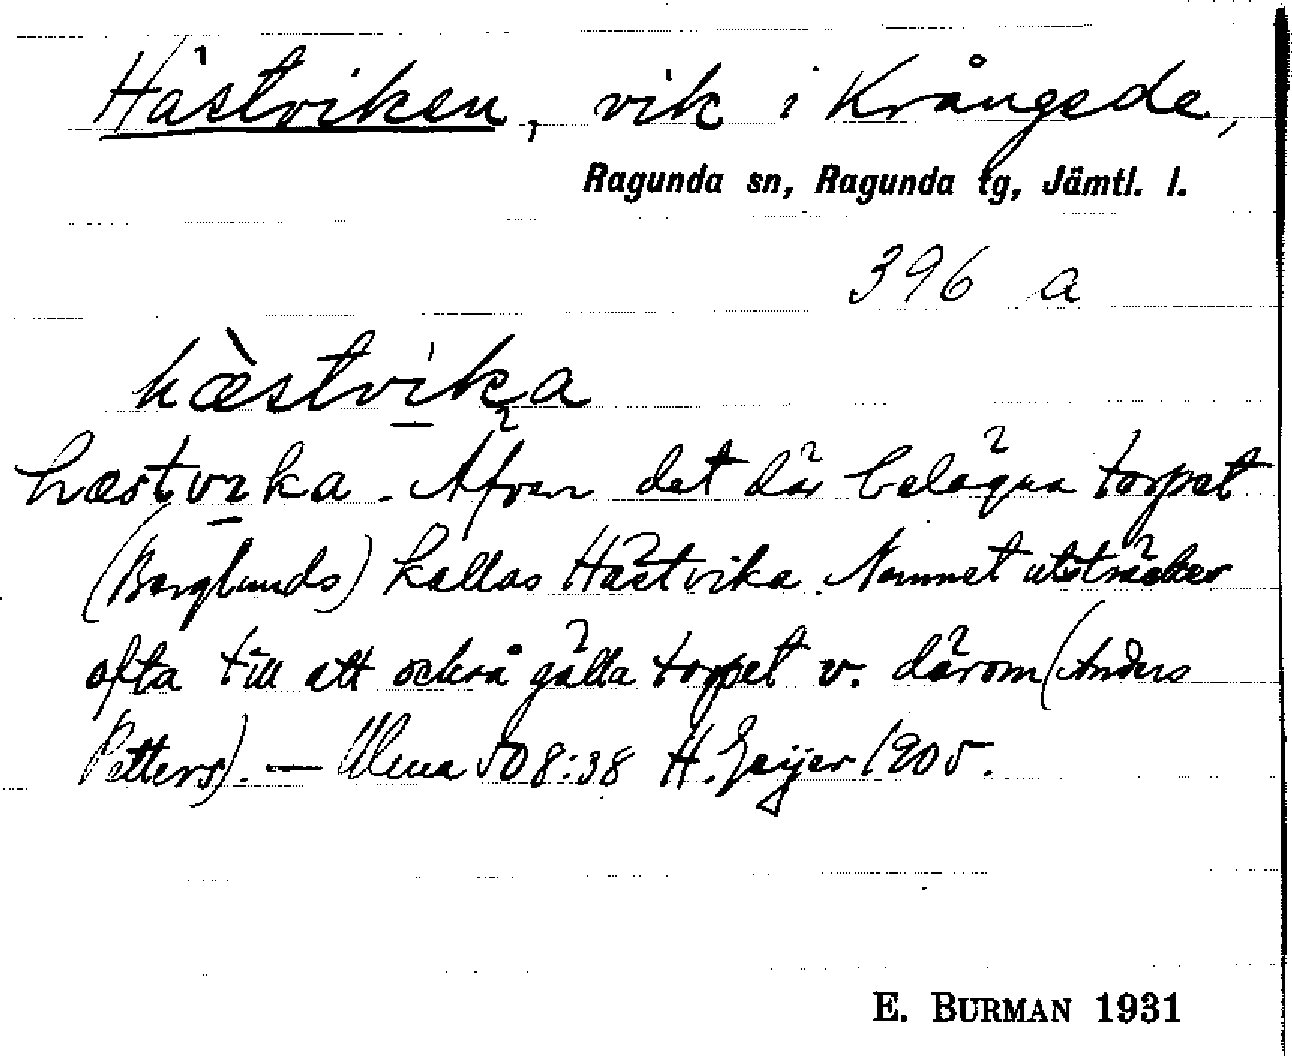 Hästviken, vik i Krångede,
Ragunda sn, Ragunda tg, Jämtl. l.
396 a
hæ̀stvika
hæstvika. Äfven det där belägna torpet
(Berglunds) kallas Hästvika. Namnet utsträcker
ofta till att också gälla torpet v. därom (Anders
Petters). — Ulma 508:38 H. Geijer 1905.
E. BURMAN 1931